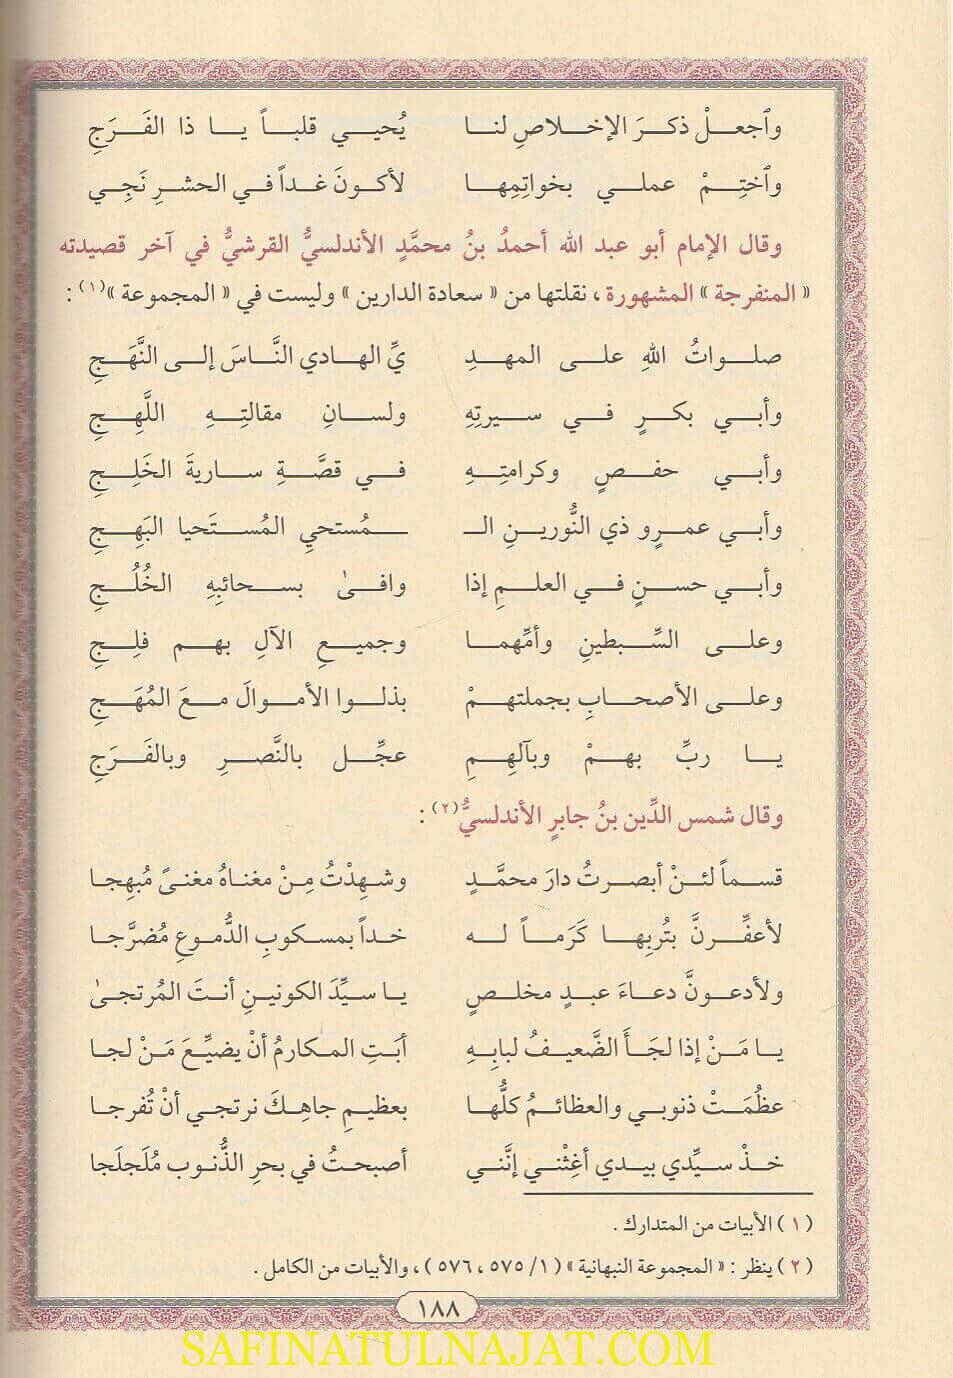 وٱجعلْ ذكرَ الإخلاصِ لنا يُحيي قلباً يا ذا الفَرَجِ
وٱختِمْ عملي بخواتِمِها لأكونَ غداً في الحشرِ نَجِي
وقال الإمام أبو عبد الله أحمدُ بنُ محمَّدٍ الأندلسيُّ القرشيُّ في آخر قصيدته
« المنفرجة » المشهورة ، نقلتها من « سعادة الدارين » وليست في « المجموعة »(١) :
صلواتُ اللهِ على المهدِ يِّ الهادي النَّاسَ إلى النَّهَجِ
وأبي بكرٍ في سيرتِهِ ولسانِ مقالتِهِ اللَّهِجِ
وأبي حفصٍ وكرامتِهِ في قصَّةِ ساريةَ الخَلِجِ
وأبي عمرٍو ذي النُّورينِ الـ ـمُستحيِ المُستَحيا البَهِجِ
وأبي حسنٍ في العلمِ إذا وافىٰ بسحائبِهِ الخُلُجِ
وعلى السِّبطينِ وأمِّهما وجميعِ الآلِ بهم فلِجِ
وعلى الأصحابِ بجملتهمْ بذلوا الأموالَ معَ المُهَجِ
يا ربِّ بهمْ وبآلِهِمِ عجِّل بالنَّصرِ وبالفَرَجِ
وقال شمس الدِّين بنُ جابرٍ الأندلسيُّ(٢) :
قسماً لئنْ أبصرتُ دارَ محمَّدٍ وشهِدْتُ مِنْ مغناهُ مغنىً مُبهِجا
لأعفِّرنَّ بتُربِها كَرَماً له خداً بمسكوبِ الدُّموعِ مُضرَّجا
ولأدعونَّ دعاءَ عبدٍ مخلصٍ يا سيِّدَ الكونينِ أنتَ المُرتجىٰ
يا مَنْ إذا لجَأَ الضَّعيفُ لبابِهِ أبَتِ المكارمُ أنْ يضيِّعَ مَنْ لجا
عظُمَتْ ذنوبي والعظائمُ كلُّها بعظيمِ جاهِكَ نرتجي أنْ تُفرجا
خذْ سيِّدي بيدي أغِثْني إنَّني أصبحتُ في بحرِ الذُّنوب مُلَجلَجا
( ١ ) الأبيات من المتدارك .
( ٢ ) ينظر : « المجموعة النبهانية » ( ١/ ٥٧٥ ، ٥٧٦ ) ، والأبيات من الكامل .
١٨٨
SAFINATULNAJAT.COM